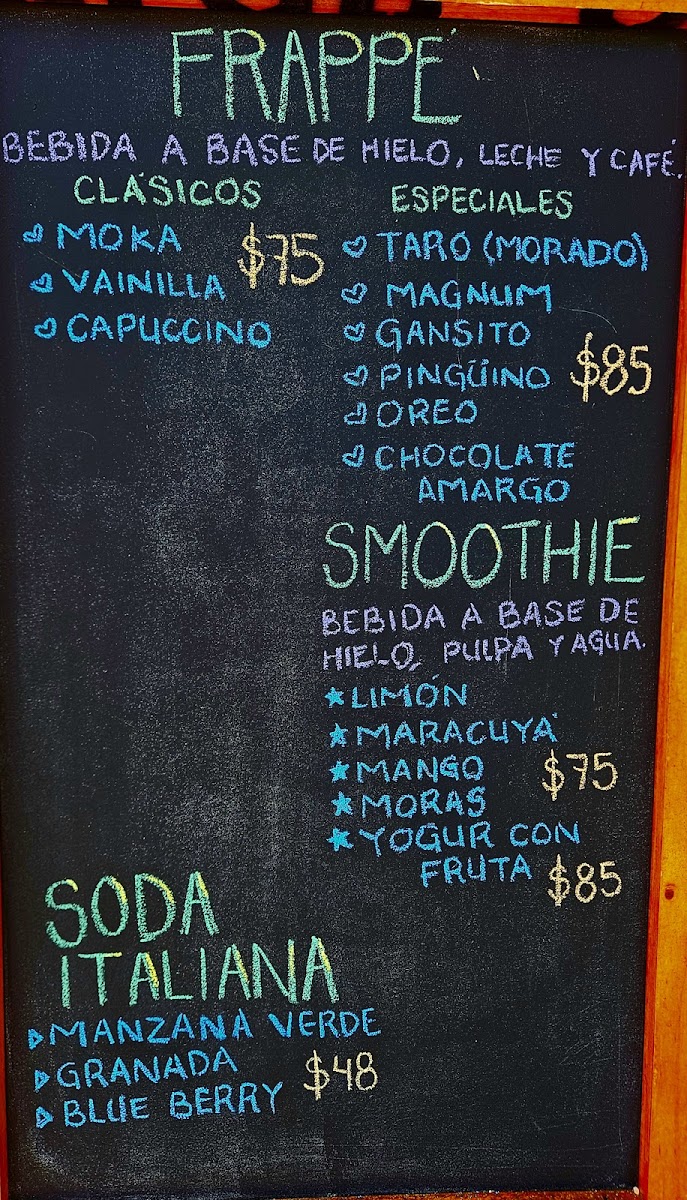 FRAPPÉ
BEBIDA A BASE DE HIELO, LECHE Y CAFÉ.
CLÁSICOS
MOKA
VAINILLA
CAPUCCINO
$75
ESPECIALES
TARO (MORADO)
MAGNUM
GANSITO
PINGÜINO
OREO
CHOCOLATE
AMARGO
$85
SMOOTHIE
BEBIDA A BASE DE
HIELO, PULPA Y AGUA.
LIMÓN
MARACUYÁ
MANGO
MORAS
$75
YOGUR CON
FRUTA $85
SODA
ITALIANA
MANZANA VERDE
GRANADA
BLUE BERRY
$48